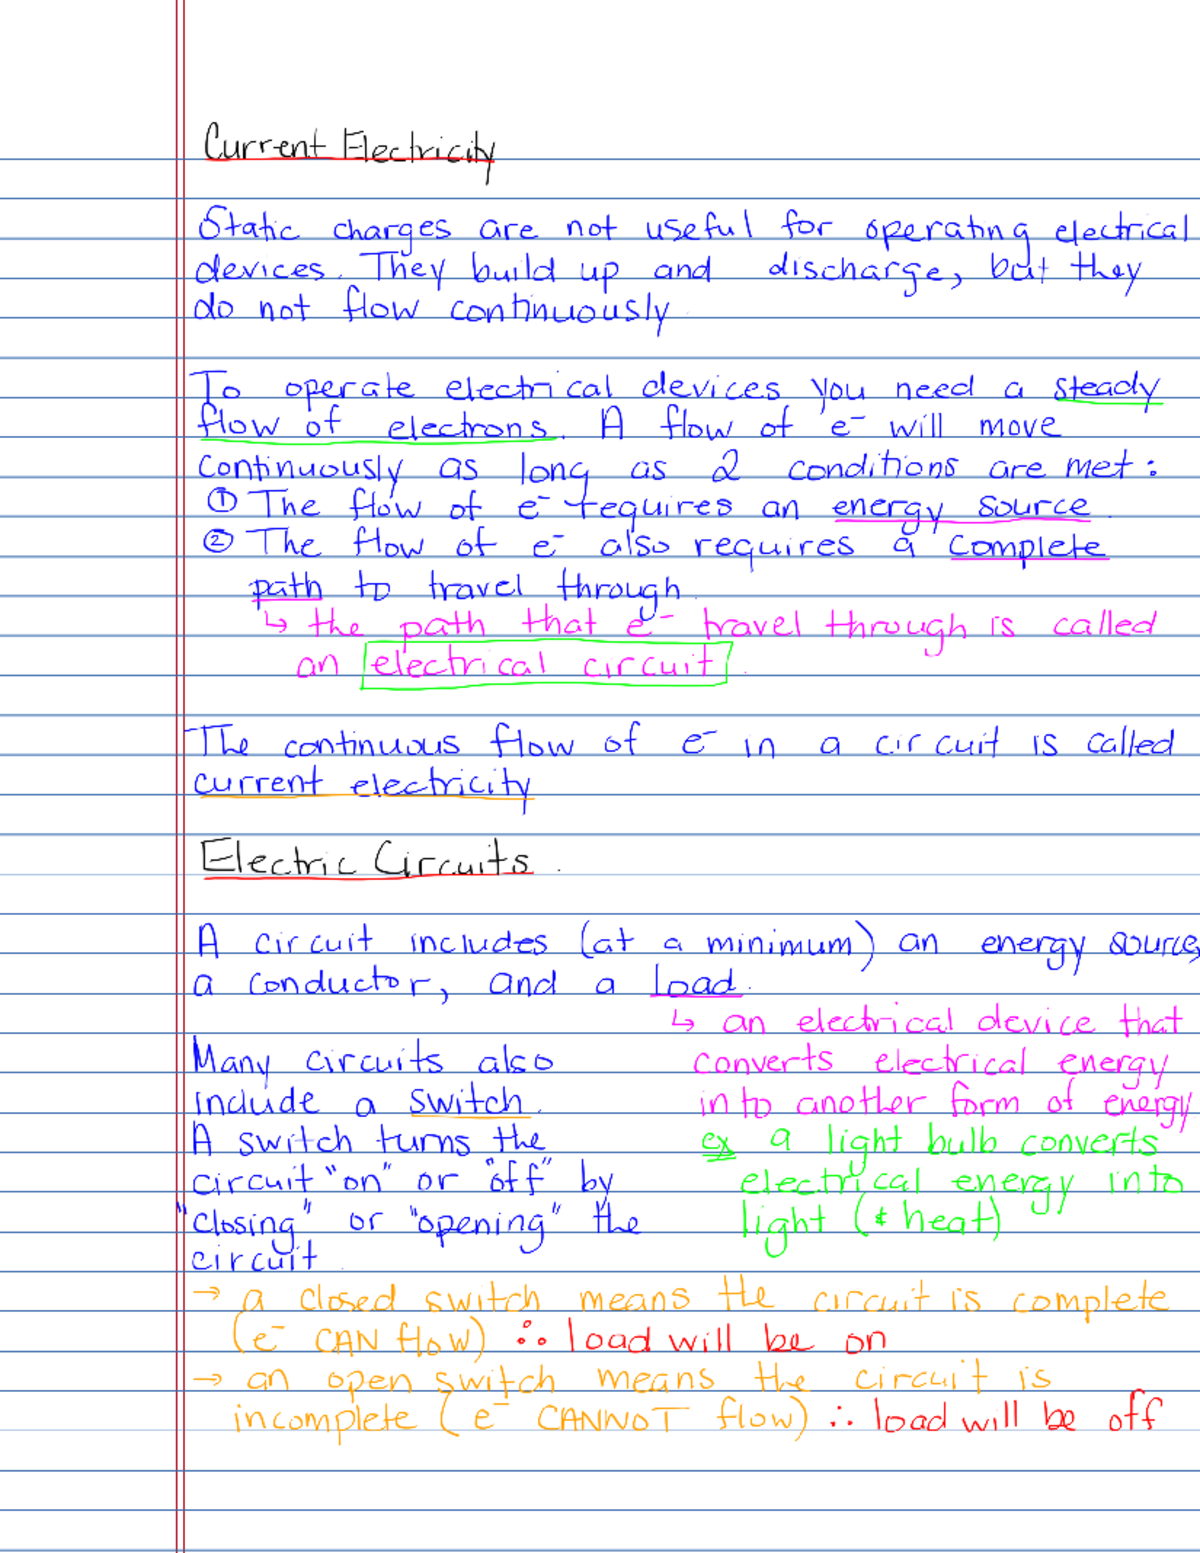 Current Electricity
Static charges are not useful for operating electrical
devices. They build up and discharge, but they
do not flow continuously
To operate electrical devices you need a steady
flow of electrons. A flow of e⁻ will move
continuously as long as 2 conditions are met:
① The flow of e⁻ requires an energy source.
② The flow of e⁻ also requires a complete
path to travel through.
↳ the path that e⁻ travel through is called
an electrical circuit.
The continuous flow of e⁻ in a circuit is called
current electricity
Electric Circuits.
A circuit includes (at a minimum) an energy source,
a conductor, and a load.
↳ an electrical device that
converts electrical energy
into another form of energy
ex a light bulb converts
electrical energy into
light (& heat)
Many circuits also
include a switch.
A switch turns the
circuit "on" or "off" by
"closing" or "opening" the
circuit.
→ a closed switch means the circuit is complete
(e⁻ CAN flow) ∴ load will be on
→ an open switch means the circuit is
incomplete (e⁻ CANNOT flow) ∴ load will be off